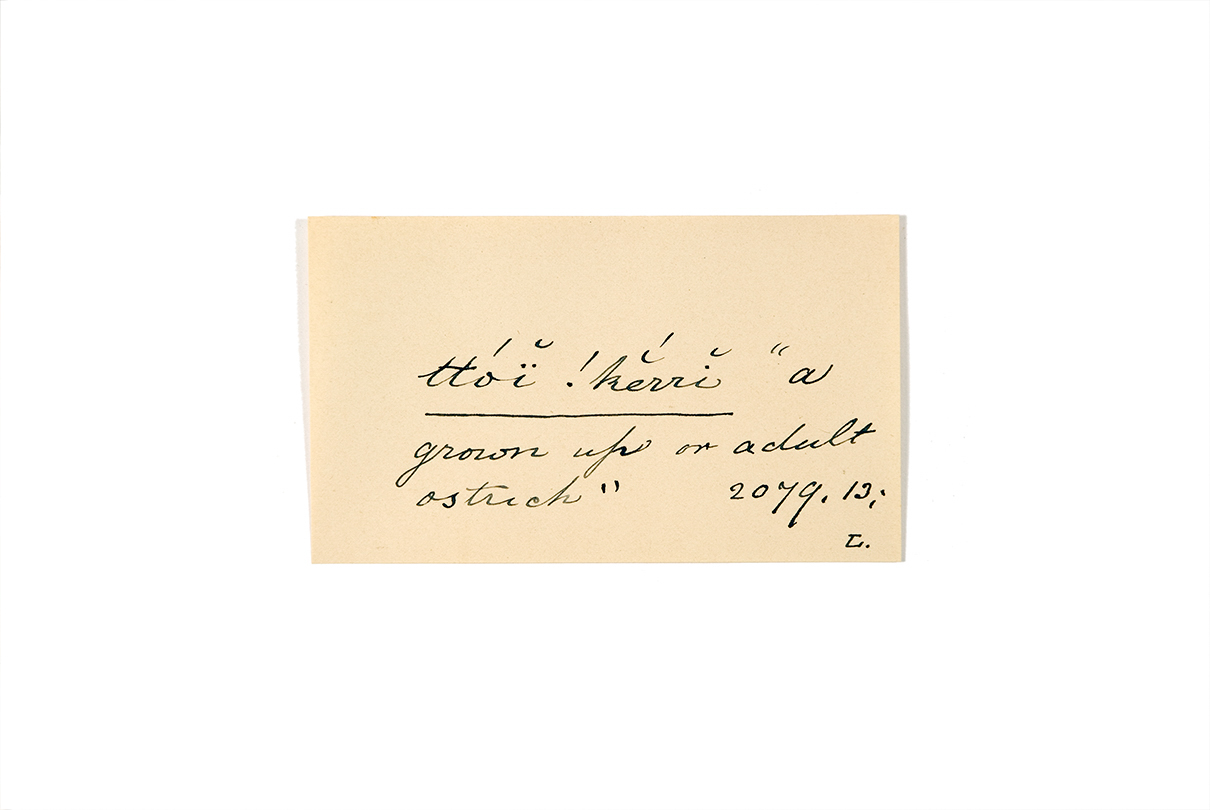 ttóı̈̆ !kĕ́rrĭ "a
grown up or adult
ostrich" 2079. 13;
L.